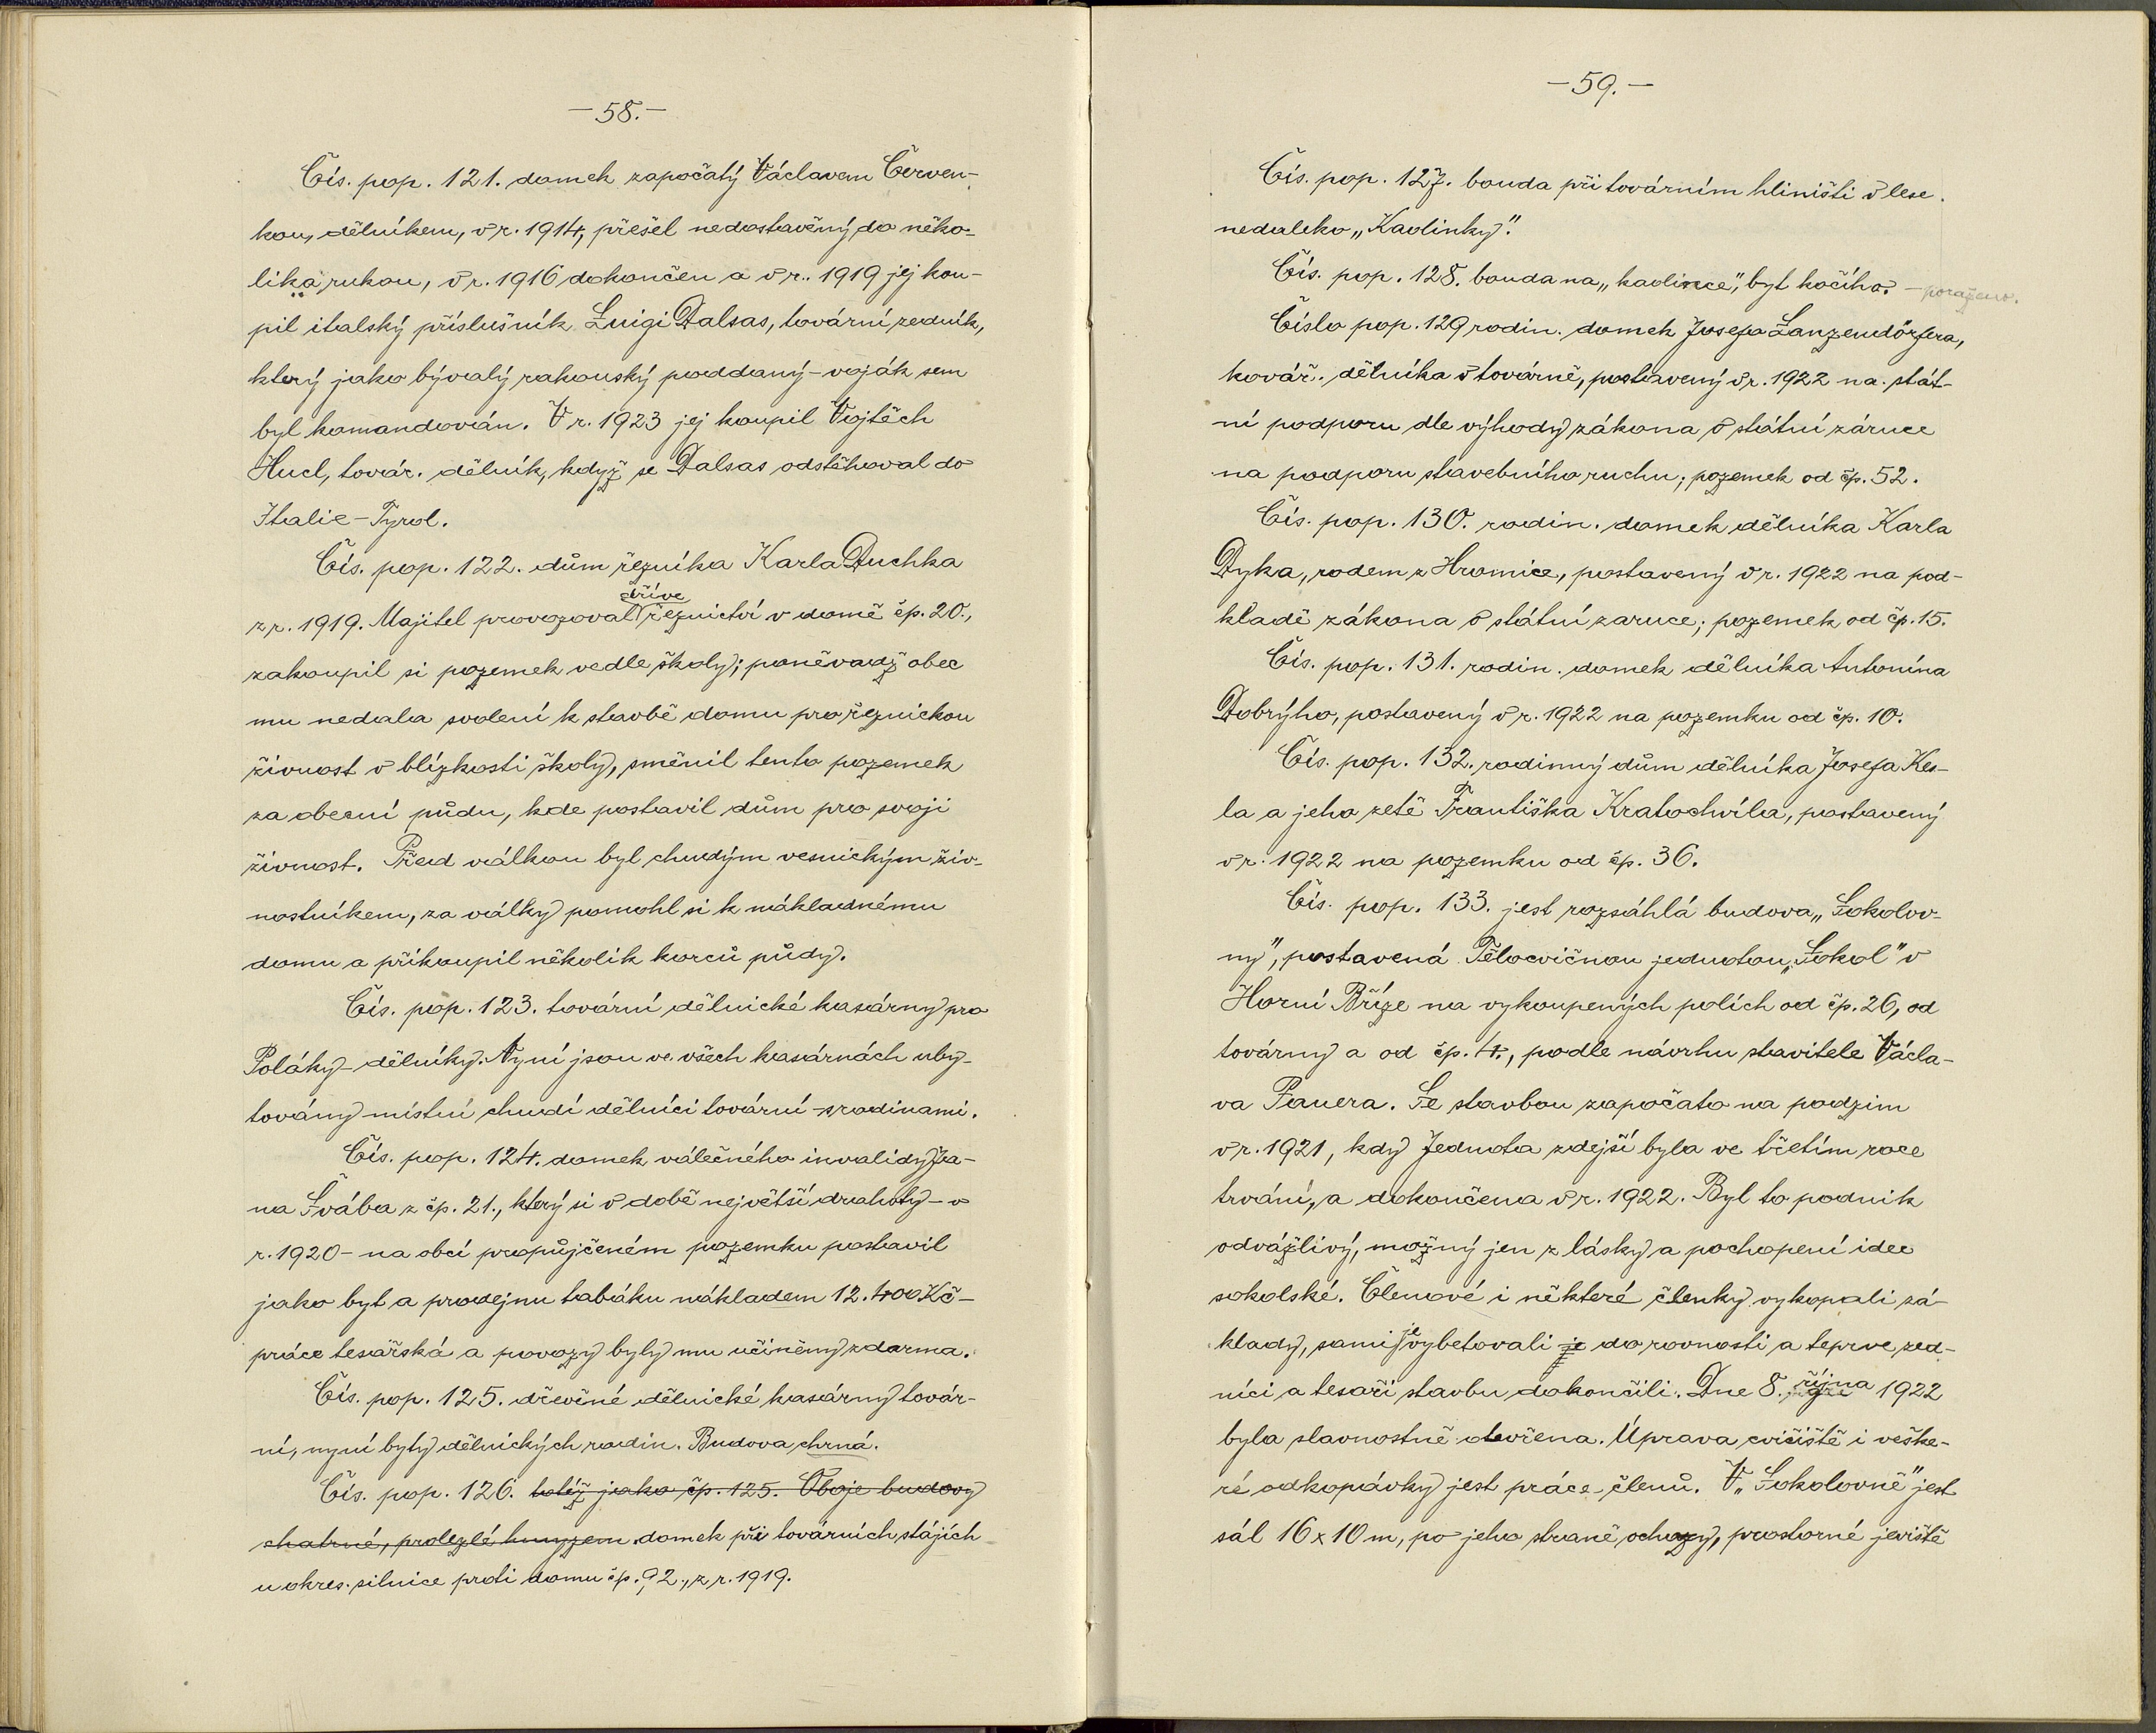 —58.—
Čís. pop. 121. domek započatý Václavem Červen-
kou, dělníkem, v r. 1914, přešel nedostavěný do něko-
lika rukou, v r. 1916 dokončen a v r. 1919 jej kou-
pil italský příslušník Luigi Dalsas, tovární zedník,
který jako bývalý rakouský poddaný - voják sem
byl komandován. V r. 1923 jej koupil Vojtěch
Hucl, továr. dělník, když se Dalsas odstěhoval do
Italie - Tyrol.
Čís. pop. 122. dům řezníka Karla Duchka
z r. 1919. Majitel provozoval dříve řeznictví v domě čp. 20.,
zakoupil si pozemek vedle školy; poněvadž obec
mu nedala svolení k stavbě domu pro řeznickou
živnost v blízkosti školy, směnil tento pozemek
za obecní půdu, kde postavil dům pro svoji
živnost. Před válkou byl chudým vesnickým živ-
nostníkem, za války pomohl si k nákladnému
domu a přikoupil několik korců půdy.
Čís. pop. 123. tovární dělnické kasárny pro
Poláky - dělníky. Nyní jsou ve všech kasárnách uby-
továny místní chudí dělníci tovární s rodinami.
Čís. pop. 124. domek válečného invalidy Ja-
na Švába z čp. 21., který si v době největší drahoty - v
r. 1920 - na obcí propůjčeném pozemku postavil
jako byt a prodejnu tabáku nákladem 12.400 Kč -
práce tesařská a povozy byly mu učiněny zdarma.
Čís. pop. 125. dřevěné dělnické kasárny továr-
ní, nyní byty dělnických rodin. Budova chrná.
Čís. pop. 126. totéž jako čp. 125. Oboje budovy
chatrné, prolezlé hmyzem. domek při továrních stájích
u okres. silnice proti domu čp. 92., z r. 1919.
—59.—
Čís. pop. 127. bouda při továrním hliništi v lese
nedaleko „Kaolinky".
Čís. pop. 128. bouda na „kaolince", byt kočího. - poraženo.
Číslo pop. 129 rodin. domek Josefa Lanzendörfera,
kovář. dělníka v továrně, postavený v r. 1922 na stát-
ní podporu dle výhody zákona o státní záruce
na podporu stavebního ruchu; pozemek od čp. 52.
Čís. pop. 130. rodin. domek dělníka Karla
Dyka, rodem z Hromice, postavený v r. 1922 na pod-
kladě zákona o státní zaruce; pozemek od čp. 15.
Čís. pop. 131. rodin. domek dělníka Antonína
Dobrýho, postavený v r. 1922 na pozemku od čp. 10.
Čís. pop. 132. rodinný dům dělníka Josefa Kes-
la a jeho zetě Františka Kratochvíla, postavený
v r. 1922 na pozemku od čp. 36.
Čís. pop. 133. jest rozsáhlá budova „Sokolov-
ny", postavená Tělocvičnou jednotou „Sokol" v
Horní Bříze na vykoupených polích od čp. 26, od
továrny a od čp. 4., podle návrhu stavitele Václa-
va Pauera. Se stavbou započato na podzim
v r. 1921, kdy Jednota zdejší byla ve třetím roce
trvání, a dokončena v r. 1922. Byl to podnik
odvážlivý, možný jen z lásky a pochopení idee
sokolské. Členové i některé členky vykopali zá-
klady, sami je vybetovali je do rovnosti a teprve zed-
níci a tesaři stavbu dokončili. Dne 8. října 1922
byla slavnostně otevřena. Úprava cvičiště i veške-
ré odkopávky jest práce členů. V „Sokolovně" jest
sál 16 x 10 m, po jeho straně ochozy, prostorné jeviště